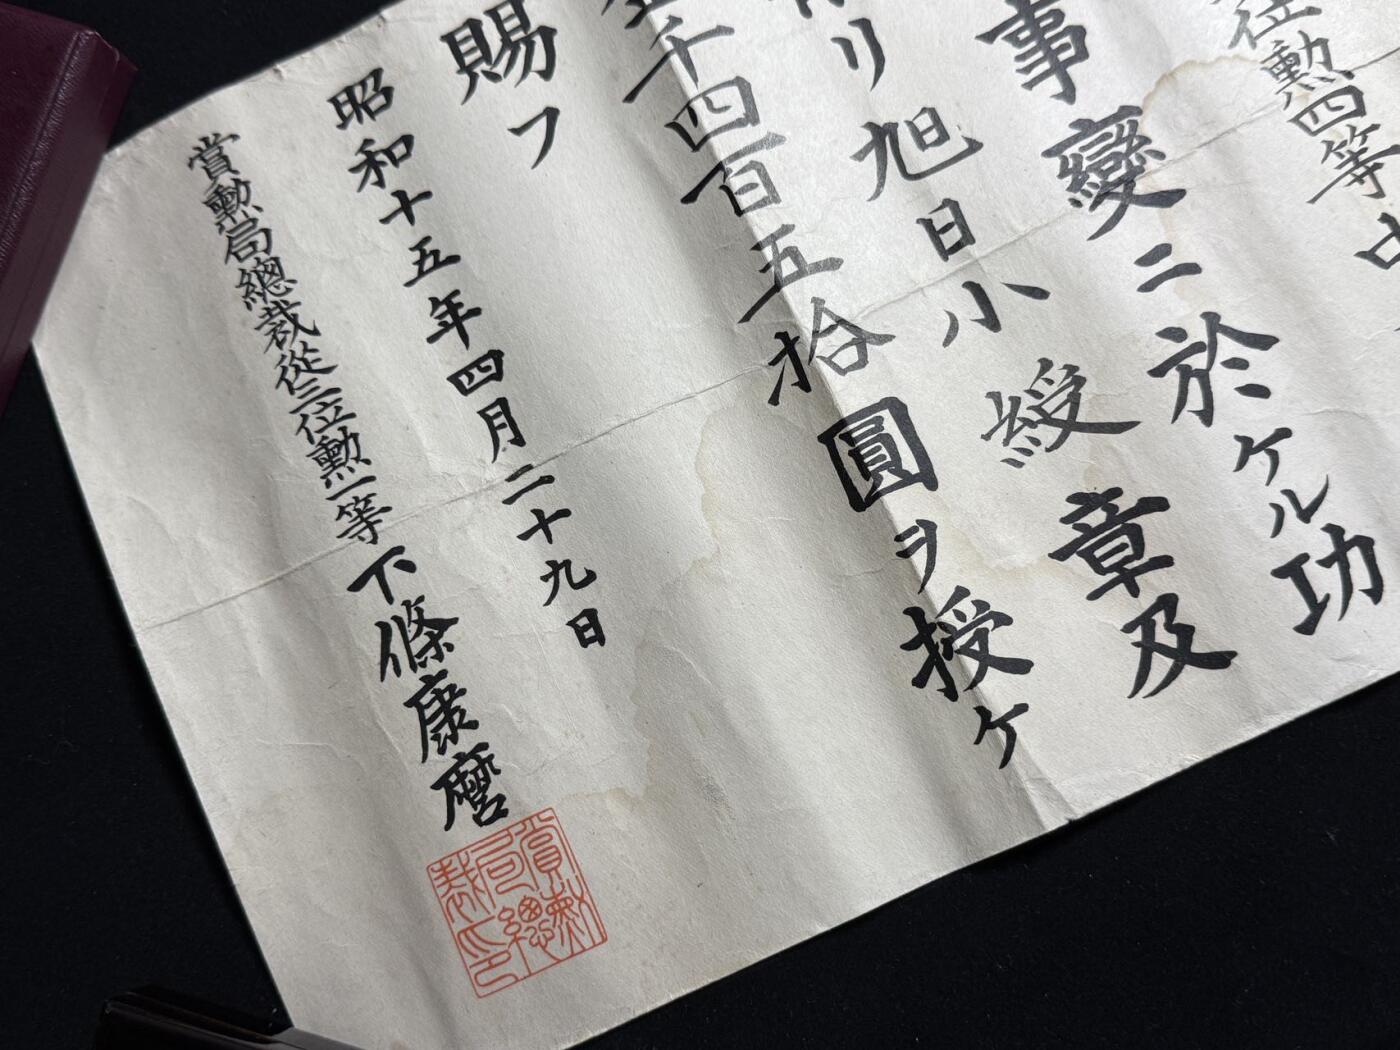 位勲四等
事變ニ於ケル功
リ旭日小綬章及
千四百五拾圓ヲ授ケ
賜フ
昭和十五年四月二十九日
賞勲局總裁從三位勲一等下條康麿
賞勲局總裁印